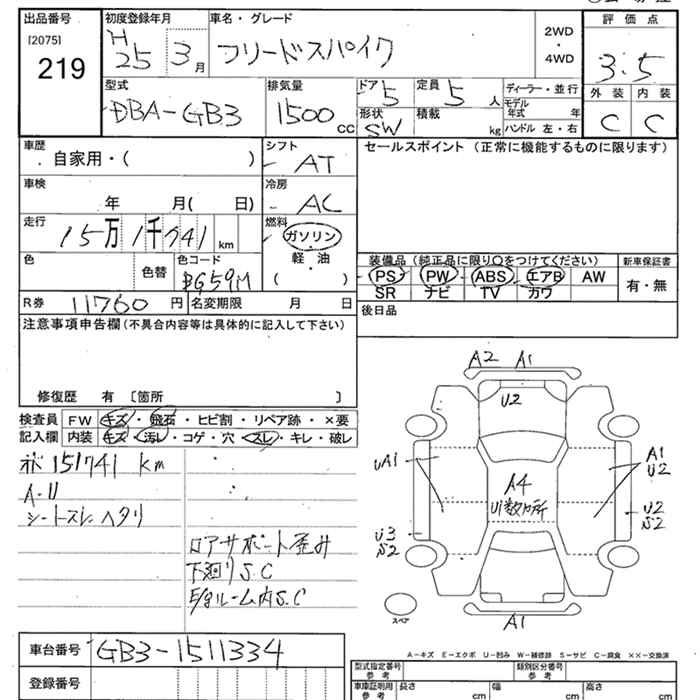 出品番号 初度登録年月 車名・グレード 評価点
[2075] 219 H25 3月 フリードスパイク 2WD・4WD 3.5
型式 排気量 ドア 定員 ディーラー・並行 外装 内装
DBA-GB3 1500cc 5 5人 モデル年式 年 C C
形状 SW 積載 kg ハンドル 左・右
車歴 シフト セールスポイント (正常に機能するものに限ります)
・自家用・( ) AT
車検 冷房
年 月( 日) AC
走行 燃料
15万1千741km ガソリン
軽・油
( )
装備品 (純正品に限り○をつけてください) 新車保証書
PS PW ABS エアB AW 有・無
SR ナビ TV カワ
色 色替 色コード BG59M
後日品
R券 11760円 名変期限 月 日
注意事項申告欄 (不具合内容等は具体的に記入して下さい)
修復歴 有 〔箇所 〕
検査員 FW キズ・飛石・ヒビ割・リペア跡・×要
記入欄 内装 キズ・汚レ・コゲ・穴・スレ・キレ・破レ
151741 km
A-U
シートスレ ヘタリ
ロアサポート歪み
下廻りS.C
E/gルーム内S.C
A2 A1
U2
UA1
A1
U2
A4
U1数カ所
U2
S2
U3
S2
スペア
A1
A-キズ E-エクボ U-凹み W-補修跡 S-サビ C-腐食 ××-交換済
車台番号 GB3-1511334
登録番号
型式指定番号 参考 類別区分番号 参考
車庫証明用 参考 長さ cm 幅 cm 高さ cm